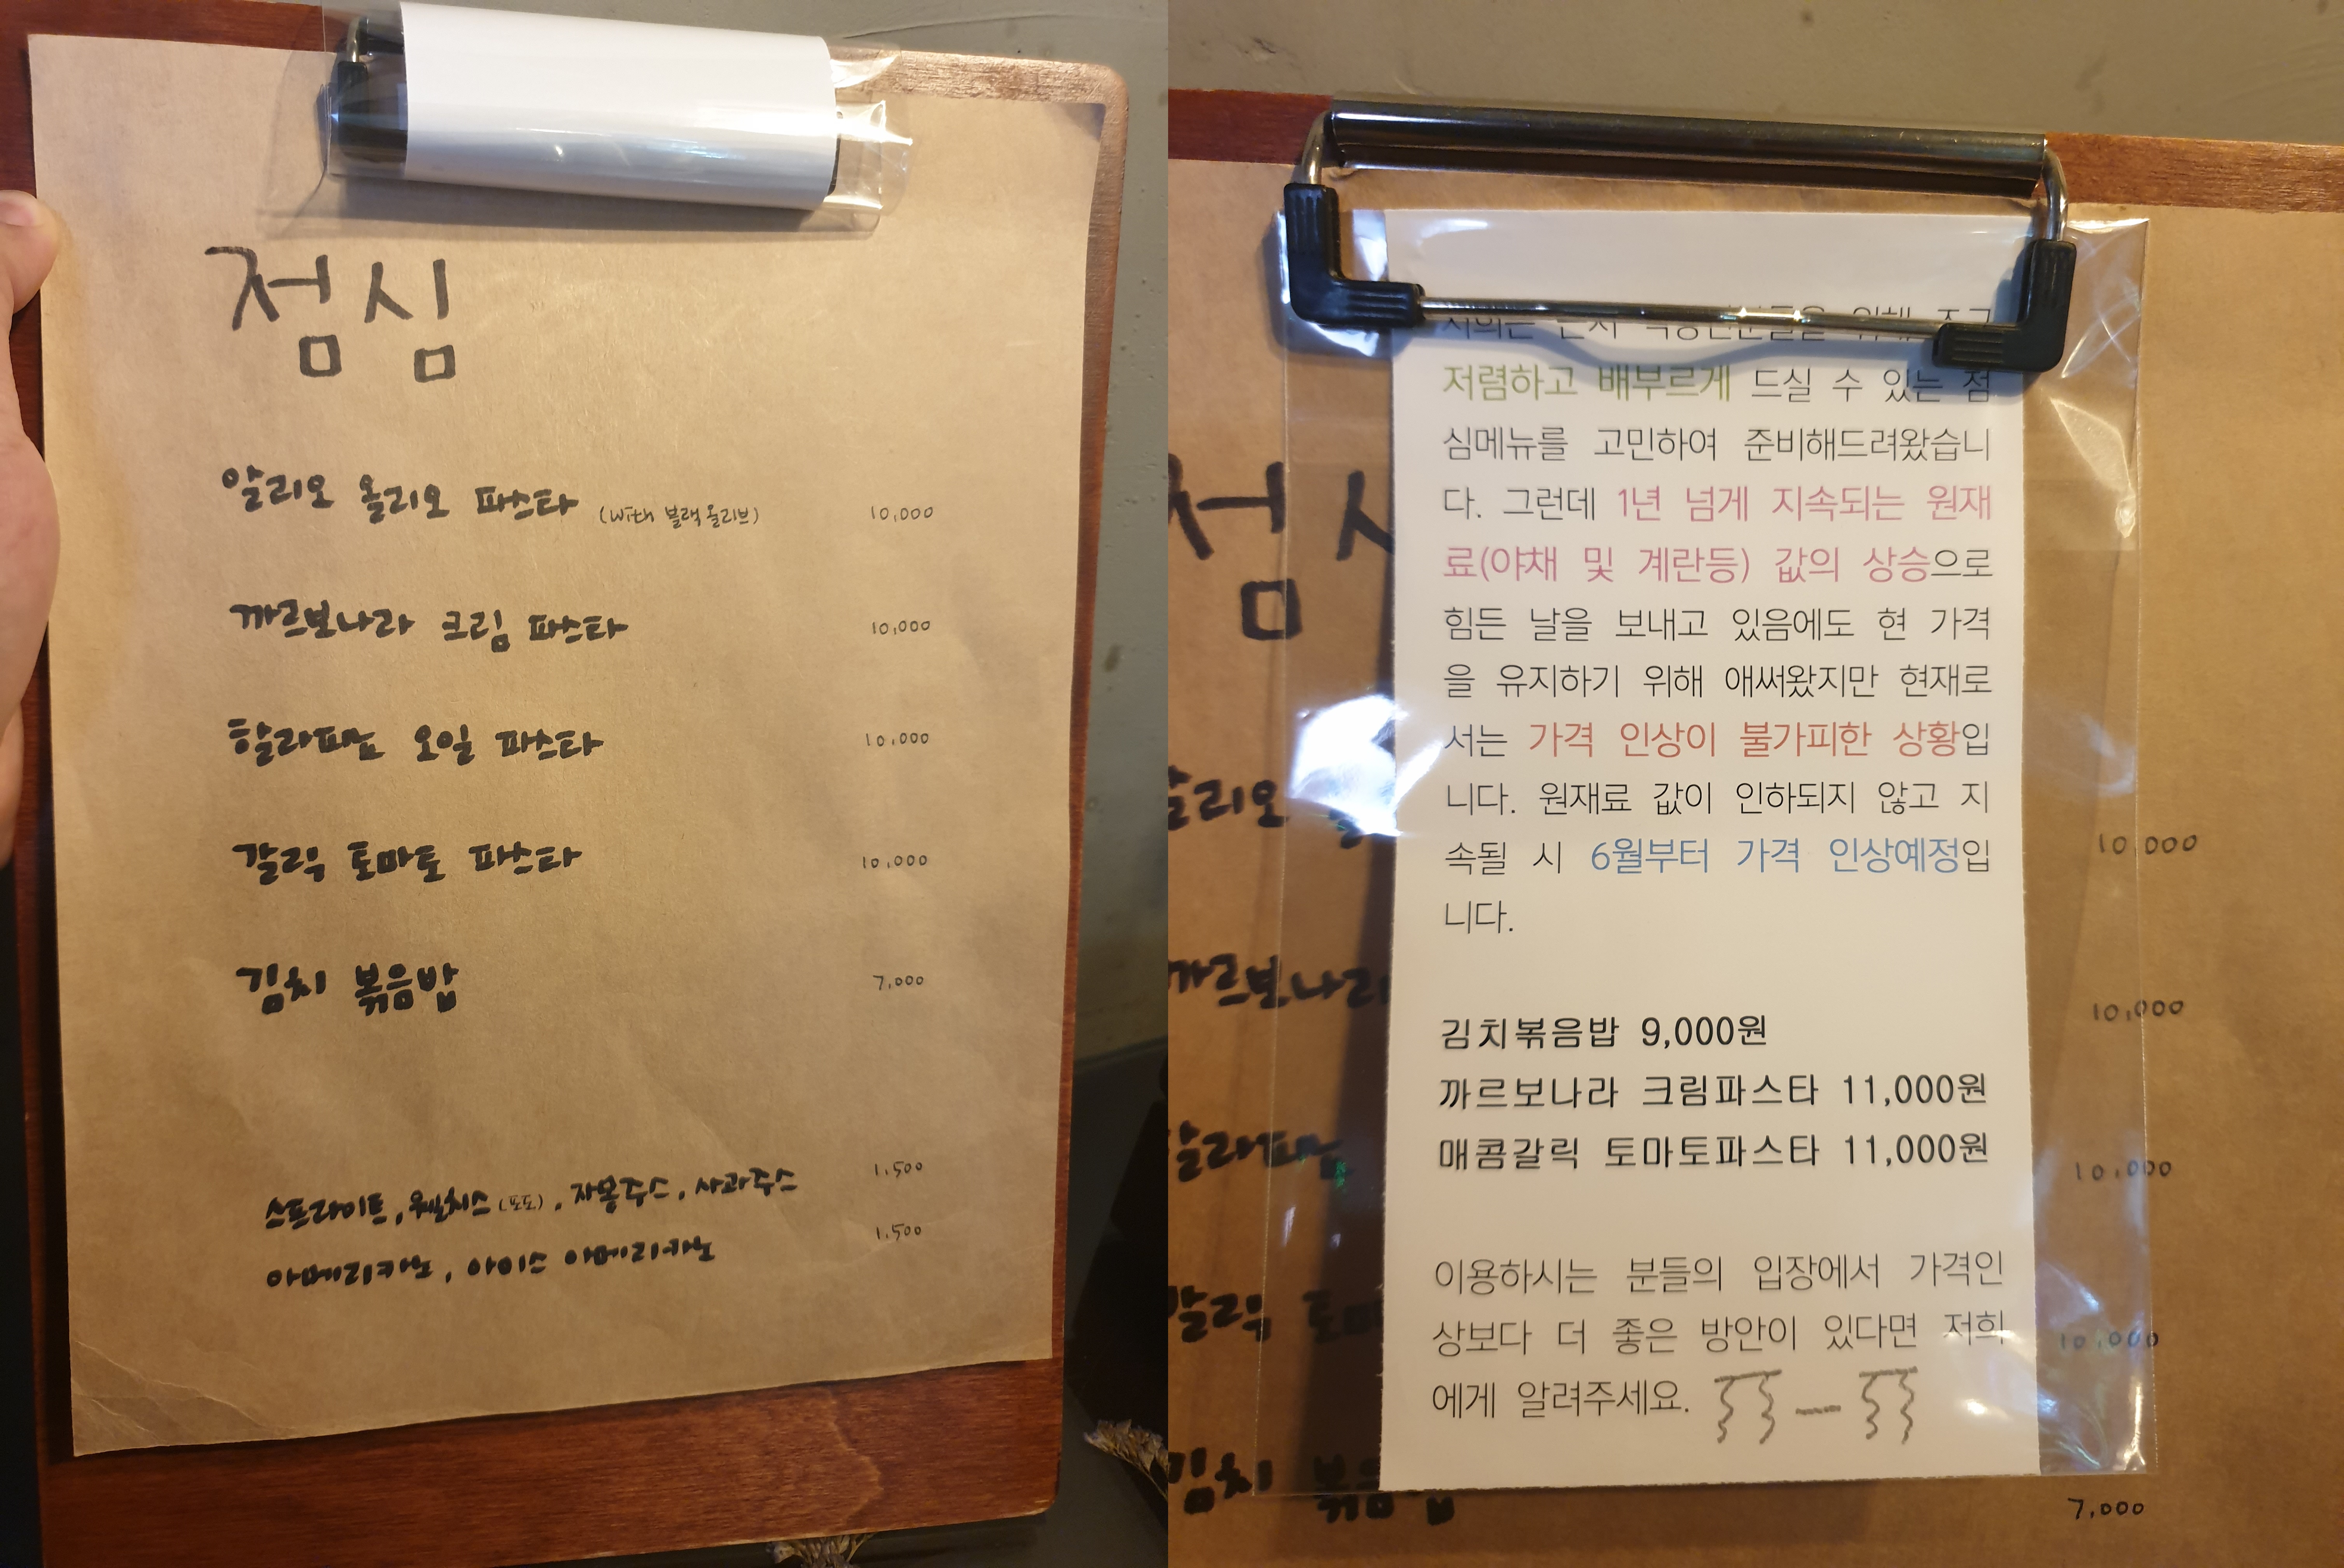 점심
알리오 올리오 파스타 (with 블랙올리브) 10,000
까르보나라 크림 파스타 10,000
할라피뇨 오일 파스타 10,000
갈릭 토마토 파스타 10,000
김치 볶음밥 7,000
스프라이트, 웰치스(포도), 자몽주스, 사과주스 1,500
아메리카노, 아이스 아메리카노 1,500
저렴하고 배부르게 드실 수 있는 점
심메뉴를 고민하여 준비해드려왔습니
다. 그런데 1년 넘게 지속되는 원재
료(야채 및 계란등) 값의 상승으로
힘든 날을 보내고 있음에도 현 가격
을 유지하기 위해 애써왔지만 현재로
서는 가격 인상이 불가피한 상황입
니다. 원재료 값이 인하되지 않고 지
속될 시 6월부터 가격 인상예정입
니다.
김치볶음밥 9,000원
까르보나라 크림파스타 11,000원
매콤갈릭 토마토파스타 11,000원
이용하시는 분들의 입장에서 가격인
상보다 더 좋은 방안이 있다면 저희
에게 알려주세요.
점시
알리오 10,000
까르보나라 10,000
할라피뇨 10,000
갈릭 토마 10,000
김치 볶음밥 7,000